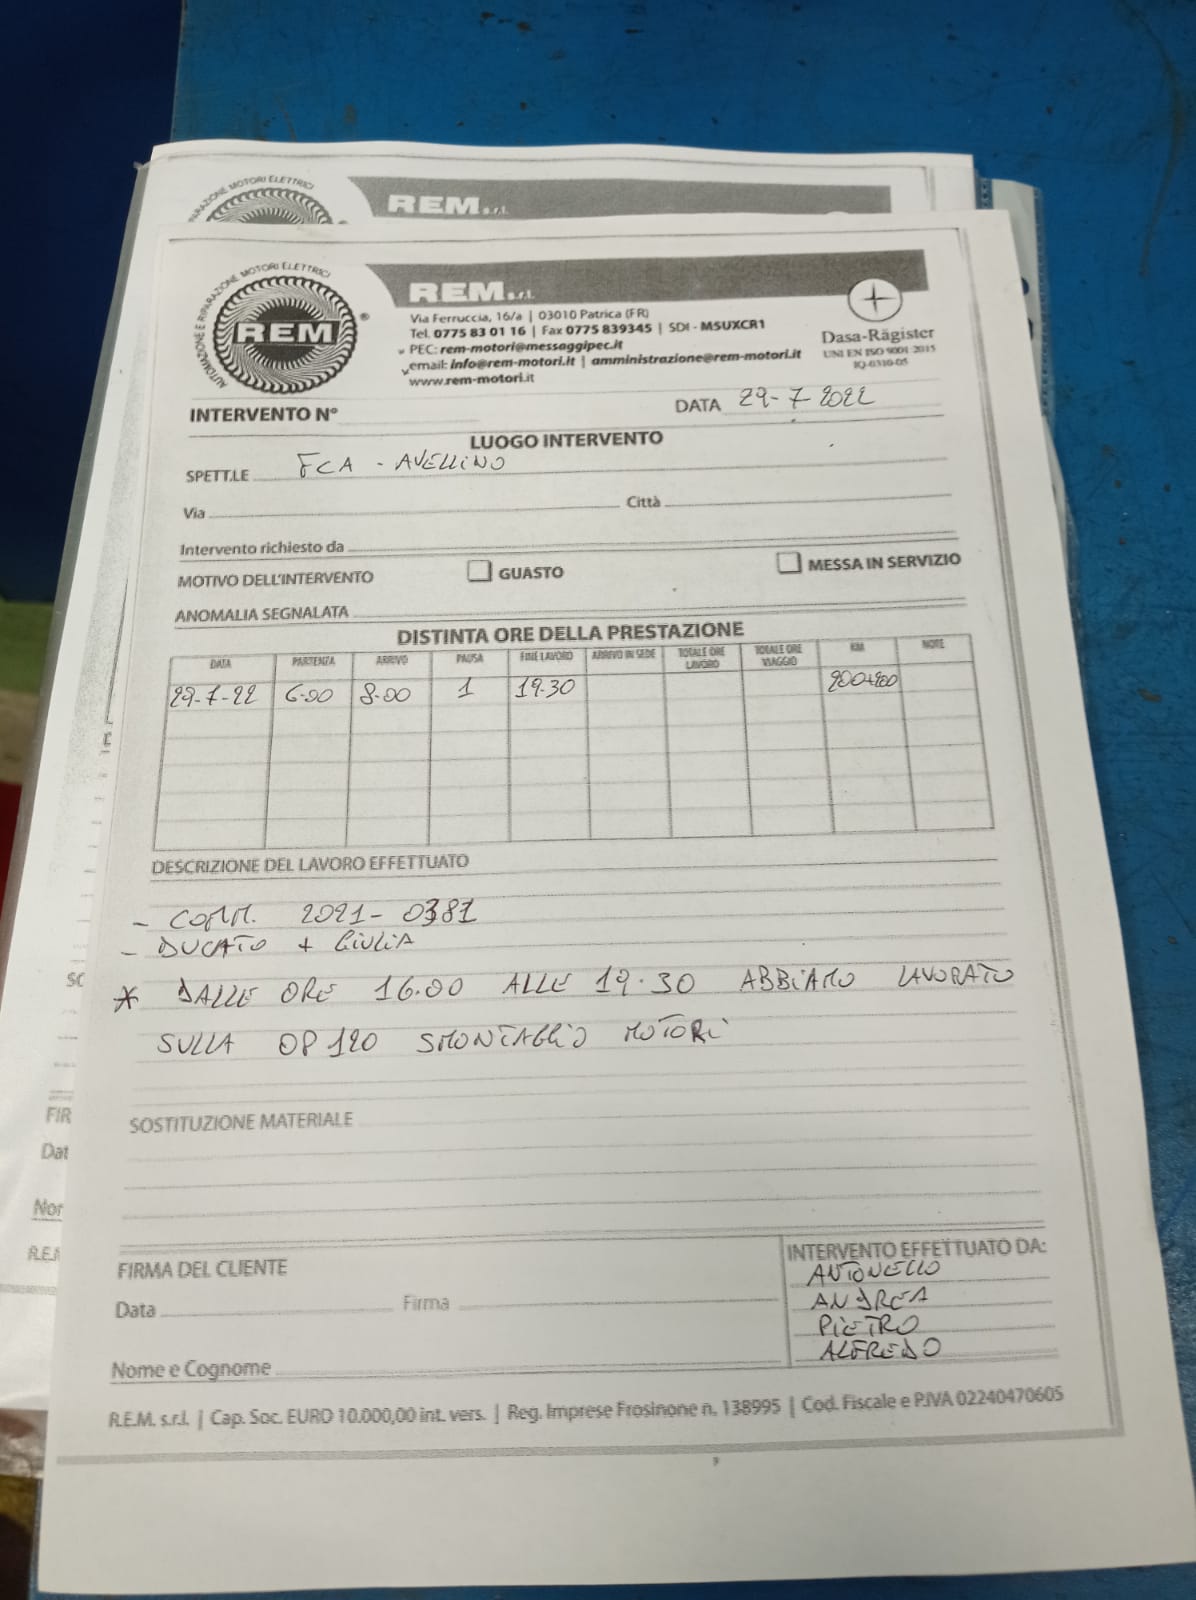 RIPARAZIONE MOTORI ELETTRICI
REM s.r.l.
AUTOMAZIONE E RIPARAZIONE MOTORI ELETTRICI
REM ®
REM s.r.l.
Via Ferruccia, 16/a | 03010 Patrica (FR)
Tel. 0775 83 01 16 | Fax 0775 839345 | SDI - M5UXCR1
PEC: rem-motori@messaggipec.it
email: info@rem-motori.it | amministrazione@rem-motori.it
www.rem-motori.it
Dasa-Rägister
UNI EN ISO 9001 2015
IQ-0310-05
INTERVENTO N°
DATA 29-7-2022
LUOGO INTERVENTO
SPETT.LE FCA - AVELLINO
Via Città
Intervento richiesto da
MOTIVO DELL'INTERVENTO GUASTO MESSA IN SERVIZIO
ANOMALIA SEGNALATA
DISTINTA ORE DELLA PRESTAZIONE
DATA PARTENZA ARRIVO PAUSA FINE LAVORO ARRIVO IN SEDE TOTALE ORE LAVORO TOTALE ORE VIAGGIO KM NOTE
29-7-22 6.00 8.00 1 19.30 200+200
DESCRIZIONE DEL LAVORO EFFETTUATO
- COMM. 2021-0381
- DUCATO + GIULIA
* DALLE ORE 16.00 ALLE 19.30 ABBIAMO LAVORATO
SULLA OP 120 SMONTAGGIO MOTORI
SOSTITUZIONE MATERIALE
FIRMA DEL CLIENTE
Data Firma
Nome e Cognome
INTERVENTO EFFETTUATO DA:
ANTONELLO
ANDREA
PIETRO
ALFREDO
R.E.M. s.r.l. | Cap. Soc. EURO 10.000,00 int. vers. | Reg. Imprese Frosinone n. 138995 | Cod. Fiscale e P.IVA 02240470605
SO
FIR
Dat
Nor
R.E.M